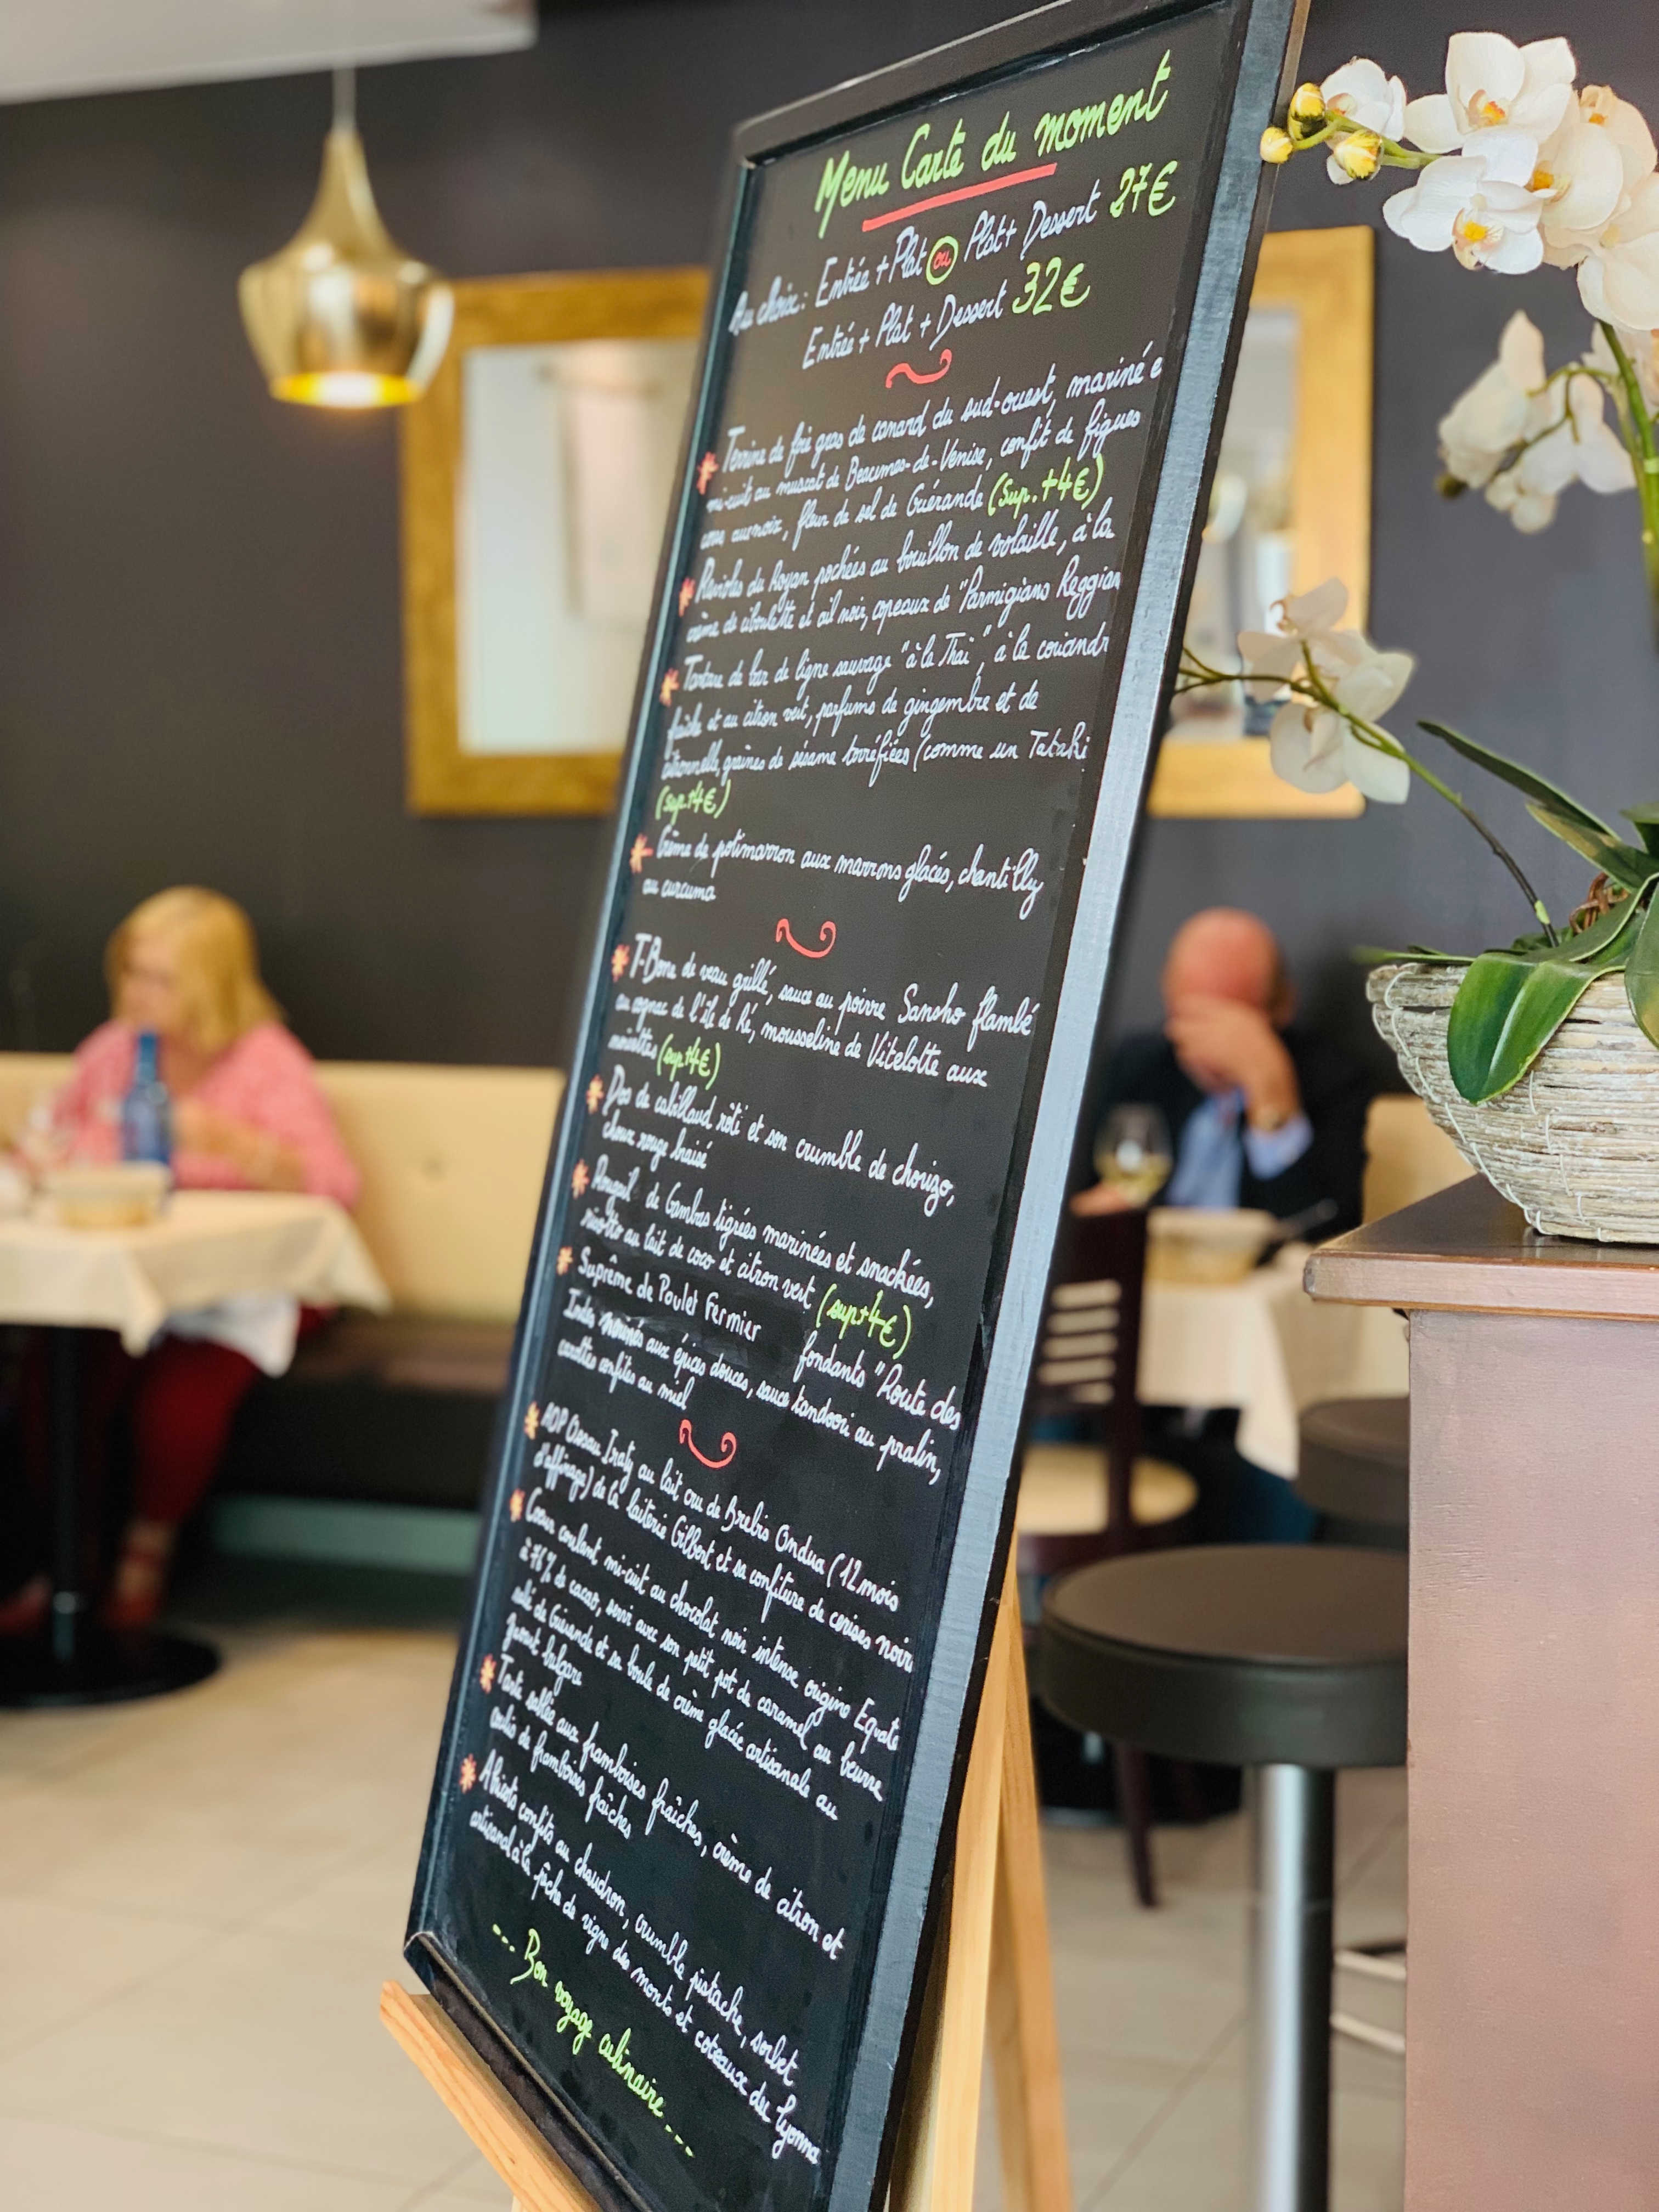 Menu Carte du moment
Au choix: Entrée + Plat ou Plat + Dessert 27€
Entrée + Plat + Dessert 32€
Terrine de foie gras de canard du sud-ouest, mariné e
mi-cuit au muscat de Beaumes-de-Venise, confit de figues
aux noix, fleur de sel de Guérande (sup. +4€)
Ravioles du Royan pochées au bouillon de volaille, à la
crème de ciboulette et ail noir, copeaux de "Parmigiano Reggian
Tartare de bar de ligne sauvage "à la Thaï", à la coriandr
fraîche et au citron vert, parfums de gingembre et de
citronnelle, graines de sésame torréfiées (comme un Tataki
(sup +4€)
Crème de potimarron aux marrons glacés, chantilly
au curcuma
T-Bone de veau grillé, sauce au poivre Sansho flambé
au cognac de l'île de Ré, mousseline de Vitelotte aux
noisettes (sup +4€)
Dos de cabillaud rôti et son crumble de chorizo,
choux rouge braisé
Rougail de Gambas tigrées marinées et snackées,
risotto au lait de coco et citron vert (sup +4€)
Suprême de Poulet Fermier fondants "Route des
Indes" marinés aux épices douces, sauce tandoori au pralin,
carottes confites au miel
AOP Ossau Iraty au lait cru de Brebis Ondua (12 mois
d'affinage) de la laiterie Gilbert et sa confiture de cerises noir
Coeur coulant mi-cuit au chocolat noir intense origine Equate
à 76% de cacao, servi avec son petit pot de caramel au beurre
salé de Guérande et sa boule de crème glacée artisanale au
yaourt bulgare
Tarte sablée aux framboises fraîches, crème de citron et
coulis de framboises fraîches
Abricots confits au chaudron, crumble pistache, sorbet
artisanal à la pêche de vigne des monts et coteaux du lyonna
--- Bon voyage culinaire ---